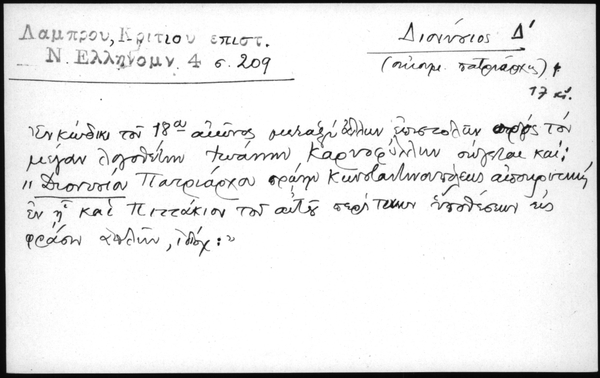 Λαμπρου, Κριτίου επιστ.
Ν. Ελληνομν. 4 σ. 209
Διονύσιος Δ΄
(οἰκουμ. πατριάρχης)
17 αἰ.
Ἐν κώδικι τοῦ 18ου αἰῶνος μεταξὺ ἄλλων ἐπιστολῶν πρὸς τὸν
μέγαν λογοθέτην Ἰωάννην Καρυοφύλλην σῴζεται καί:
"Διονυσίου Πατριάρχου πρῴην Κωνσταντινουπόλεως ἀποκριτική
ἐν ᾗ καὶ Πιττάκιον τοῦ αὐτοῦ περὶ ὑποθέσεων εἰς
φράσιν ἁπλῆν